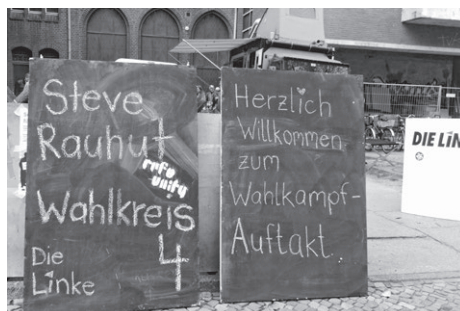 Steve
Rauhut
refu
unity
Wahlkreis
4
Die
Linke
Herzlich
Willkommen
zum
Wahlkampf-
Auftakt
DIE LIN